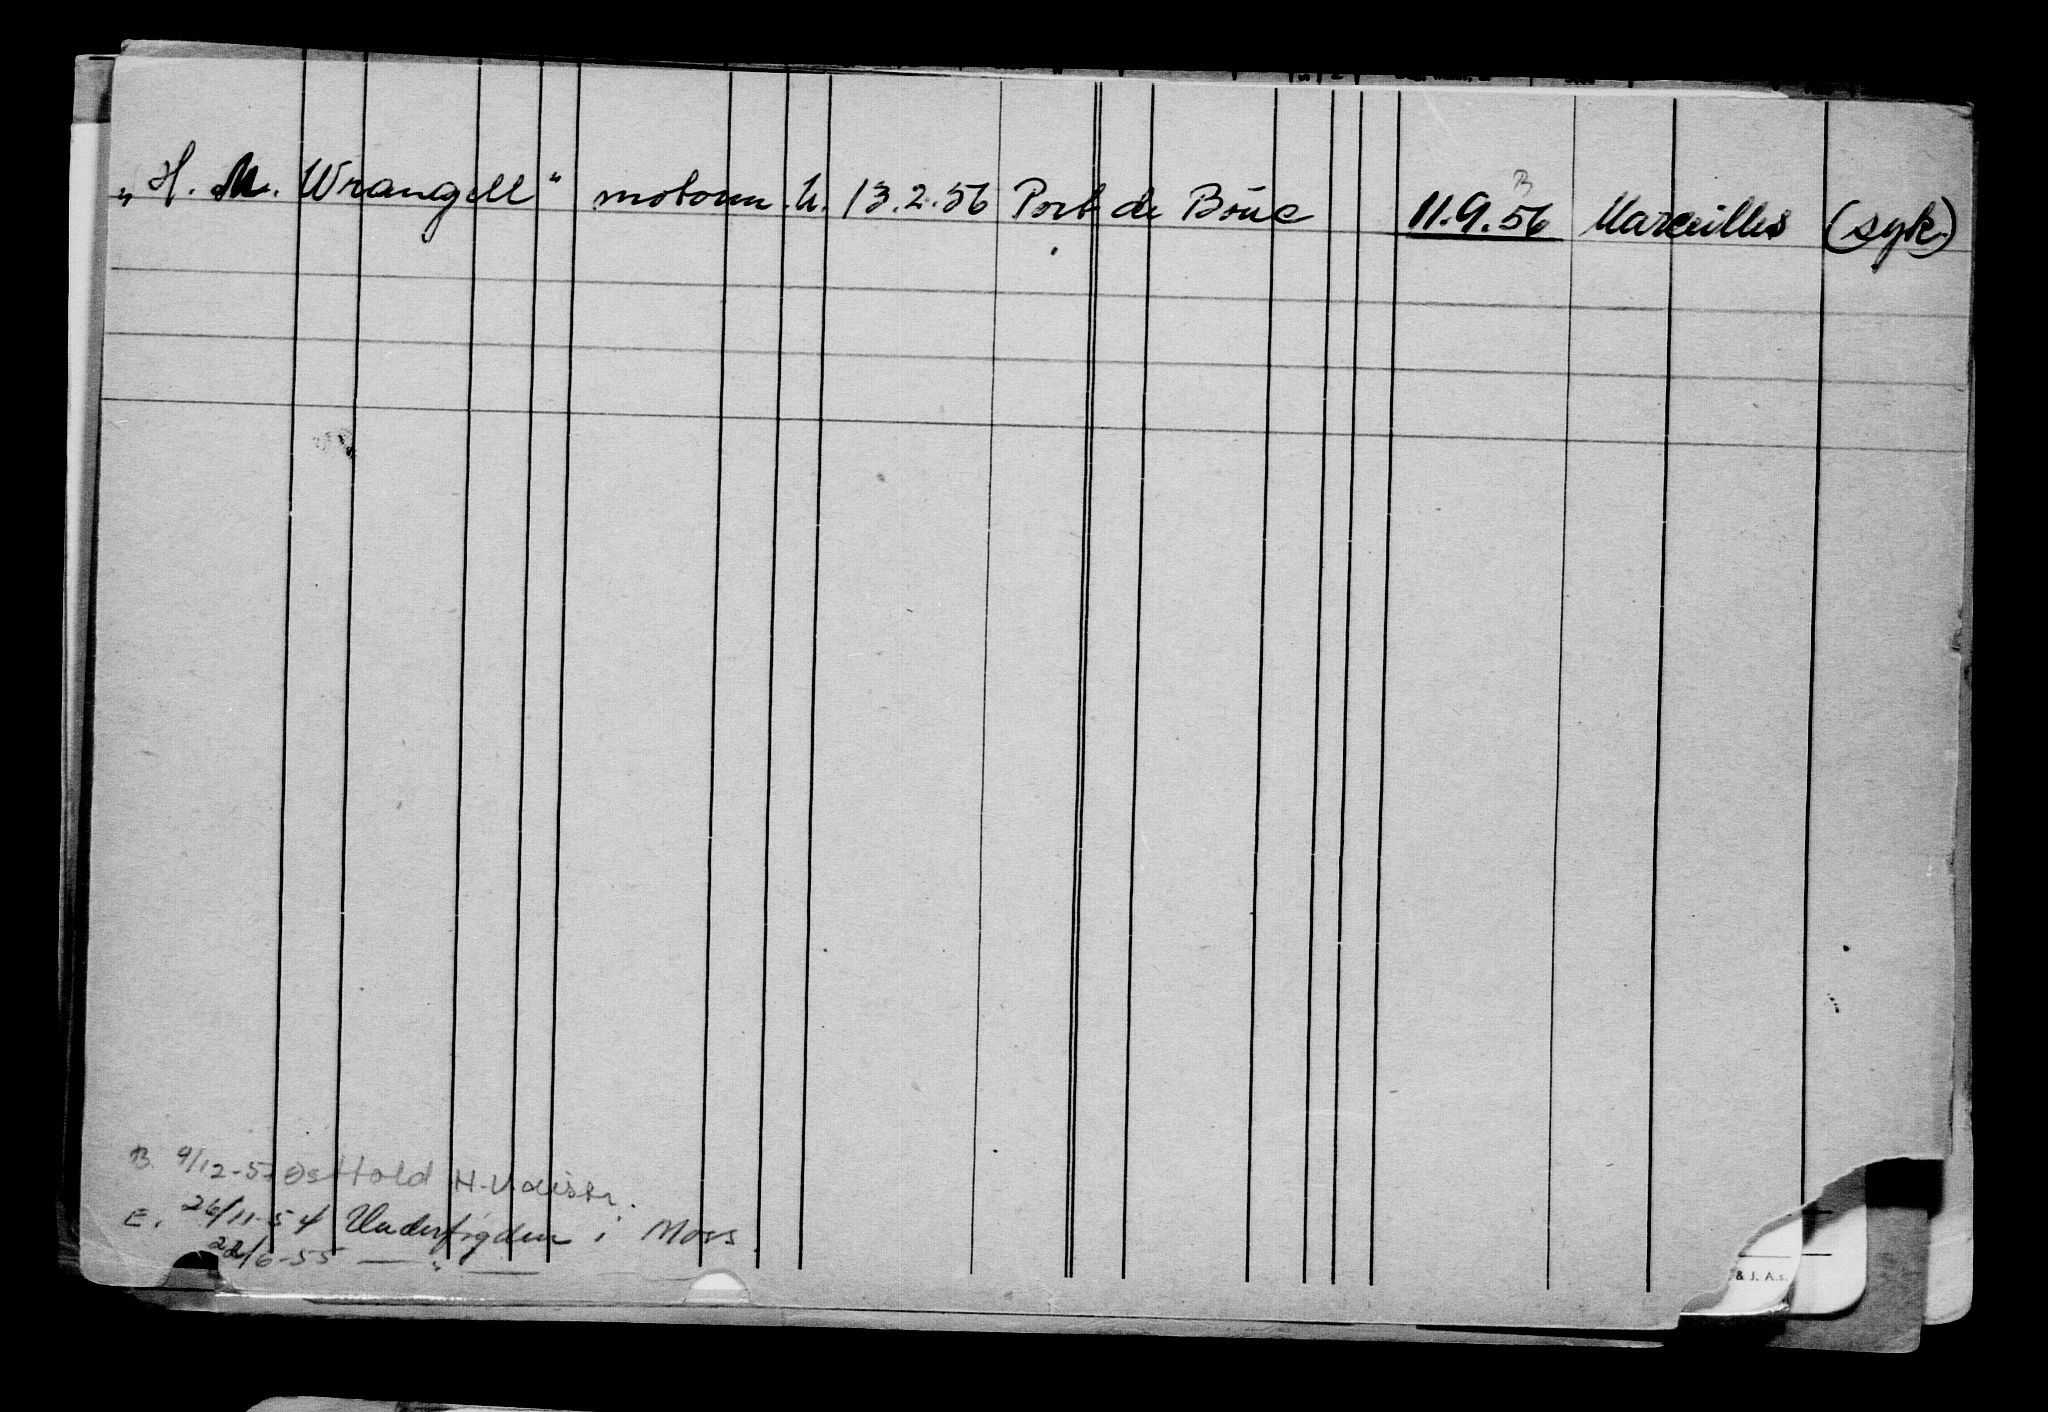 „H. M. Wrangell" motorm. h. 13.2.56 Port de Bouc 11.9.56 Marseilles (syk)
B
B. 9/12-5 Østfold H.
E. 26/11-54 Underfogden i Moss.
22/6-55 — „ —
& J. A.s.